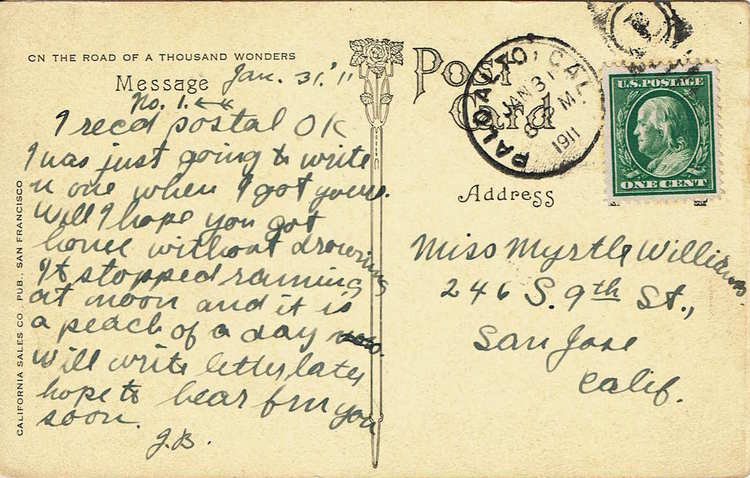 ON THE ROAD OF A THOUSAND WONDERS
Message
Jan. 31.' 11
No. 1.
I recd postal OK
I was just going to write
u one when I got yours.
Will I hope you got
home without drowning
It stopped raining
at noon and it is
a peach of a day now.
Will write letter later
hope to hear frm you
soon.
J.B.
CALIFORNIA SALES CO., PUB., SAN FRANCISCO
Post
Card
PALO ALTO, CAL.
JAN 31
8 M
1911
U.S. POSTAGE
ONE CENT
Address
Miss Myrtle Williams
246 S. 9th St.,
San Jose
Calif.